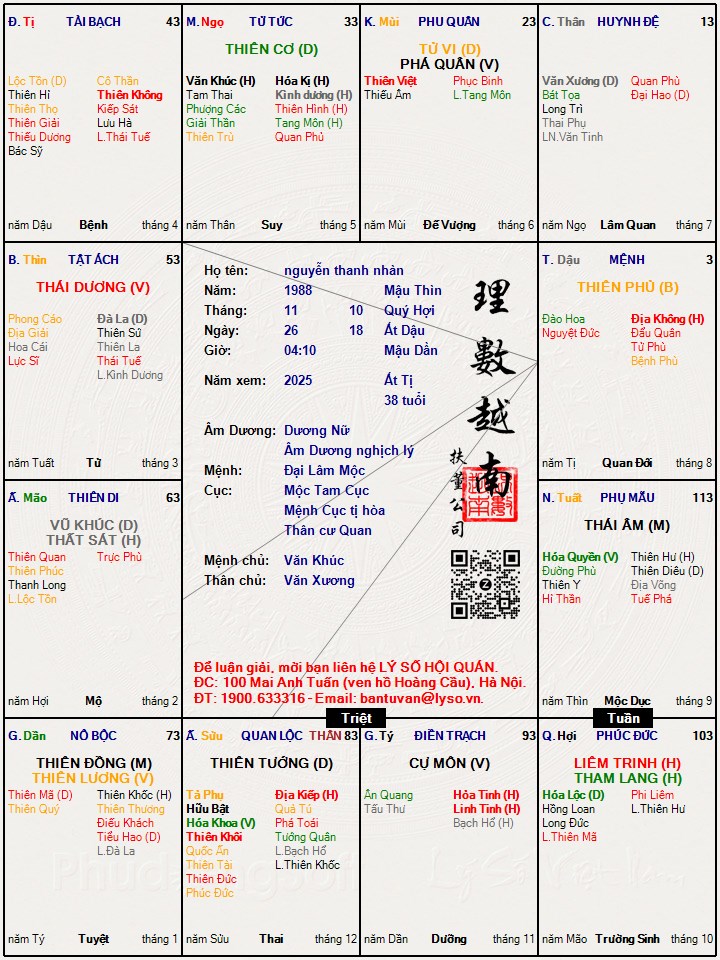 Đ. Tị TÀI BẠCH 43
Lộc Tồn (D) Cô Thần
Thiên Hỉ Thiên Không
Thiên Thọ Kiếp Sát
Thiên Giải Lưu Hà
Thiếu Dương L.Thái Tuế
Bác Sỹ
năm Dậu Bệnh tháng 4
M. Ngọ TỬ TỨC 33
THIÊN CƠ (D)
Văn Khúc (H) Hóa Kị (H)
Tam Thai Kình dương (H)
Phượng Các Thiên Hình (H)
Giải Thần Tang Môn (H)
Thiên Trù Quan Phủ
năm Thân Suy tháng 5
K. Mùi PHU QUÂN 23
TỬ VI (D)
PHÁ QUÂN (V)
Thiên Việt Phục Binh
Thiếu Âm L.Tang Môn
năm Mùi Đế Vượng tháng 6
C. Thân HUYNH ĐỆ 13
Văn Xương (D) Quan Phù
Bát Tọa Đại Hao (D)
Long Trì
Thai Phụ
LN.Văn Tinh
năm Ngọ Lâm Quan tháng 7
B. Thìn TẬT ÁCH 53
THÁI DƯƠNG (V)
Phong Cáo Đà La (D)
Địa Giải Thiên Sứ
Hoa Cái Thiên La
Lực Sĩ Thái Tuế
L.Kình Dương
năm Tuất Tử tháng 3
Họ tên: nguyễn thanh nhàn
Năm: 1988 Mậu Thìn
Tháng: 11 10 Quý Hợi
Ngày: 26 18 Ất Dậu
Giờ: 04:10 Mậu Dần
Năm xem: 2025 Ất Tị
38 tuổi
Âm Dương: Dương Nữ
Âm Dương nghịch lý
Mệnh: Đại Lâm Mộc
Cục: Mộc Tam Cục
Mệnh Cục tị hòa
Thân cư Quan
Mệnh chủ: Văn Khúc
Thân chủ: Văn Xương
理數越南
扶董公司
Để luận giải, mời bạn liên hệ LÝ SỐ HỘI QUÁN.
ĐC: 100 Mai Anh Tuấn (ven hồ Hoàng Cầu), Hà Nội.
ĐT: 1900.633316 - Email: bantuvan@lyso.vn.
T. Dậu MỆNH 3
THIÊN PHỦ (B)
Đào Hoa Địa Không (H)
Nguyệt Đức Đẩu Quân
Tử Phù
Bệnh Phù
năm Tị Quan Đới tháng 8
Ấ. Mão THIÊN DI 63
VŨ KHÚC (D)
THẤT SÁT (H)
Thiên Quan Trực Phù
Thiên Phúc
Thanh Long
L.Lộc Tồn
năm Hợi Mộ tháng 2
N. Tuất PHỤ MẪU 113
THÁI ÂM (M)
Hóa Quyền (V) Thiên Hư (H)
Đường Phù Thiên Diêu (D)
Thiên Y Địa Võng
Hỉ Thần Tuế Phá
năm Thìn Mộc Dục tháng 9
Triệt
Tuần
G. Dần NÔ BỘC 73
THIÊN ĐỒNG (M)
THIÊN LƯƠNG (V)
Thiên Mã (D) Thiên Khốc (H)
Thiên Quý Thiên Thương
Điếu Khách
Tiểu Hao (D)
L.Đà La
năm Tý Tuyệt tháng 1
Ấ. Sửu QUAN LỘC THÂN 83
THIÊN TƯỚNG (D)
Tả Phụ Địa Kiếp (H)
Hữu Bật Quả Tú
Hóa Khoa (V) Phá Toái
Thiên Khôi Tướng Quân
Quốc Ấn L.Bạch Hổ
Thiên Tài L.Thiên Khốc
Thiên Đức
Phúc Đức
năm Sửu Thai tháng 12
G. Tý ĐIỀN TRẠCH 93
CỰ MÔN (V)
Ân Quang Hỏa Tinh (H)
Tấu Thư Linh Tinh (H)
Bạch Hổ (H)
năm Dần Dưỡng tháng 11
Q. Hợi PHÚC ĐỨC 103
LIÊM TRINH (H)
THAM LANG (H)
Hóa Lộc (D) Phi Liêm
Hồng Loan L.Thiên Hư
Long Đức
L.Thiên Mã
năm Mão Trường Sinh tháng 10